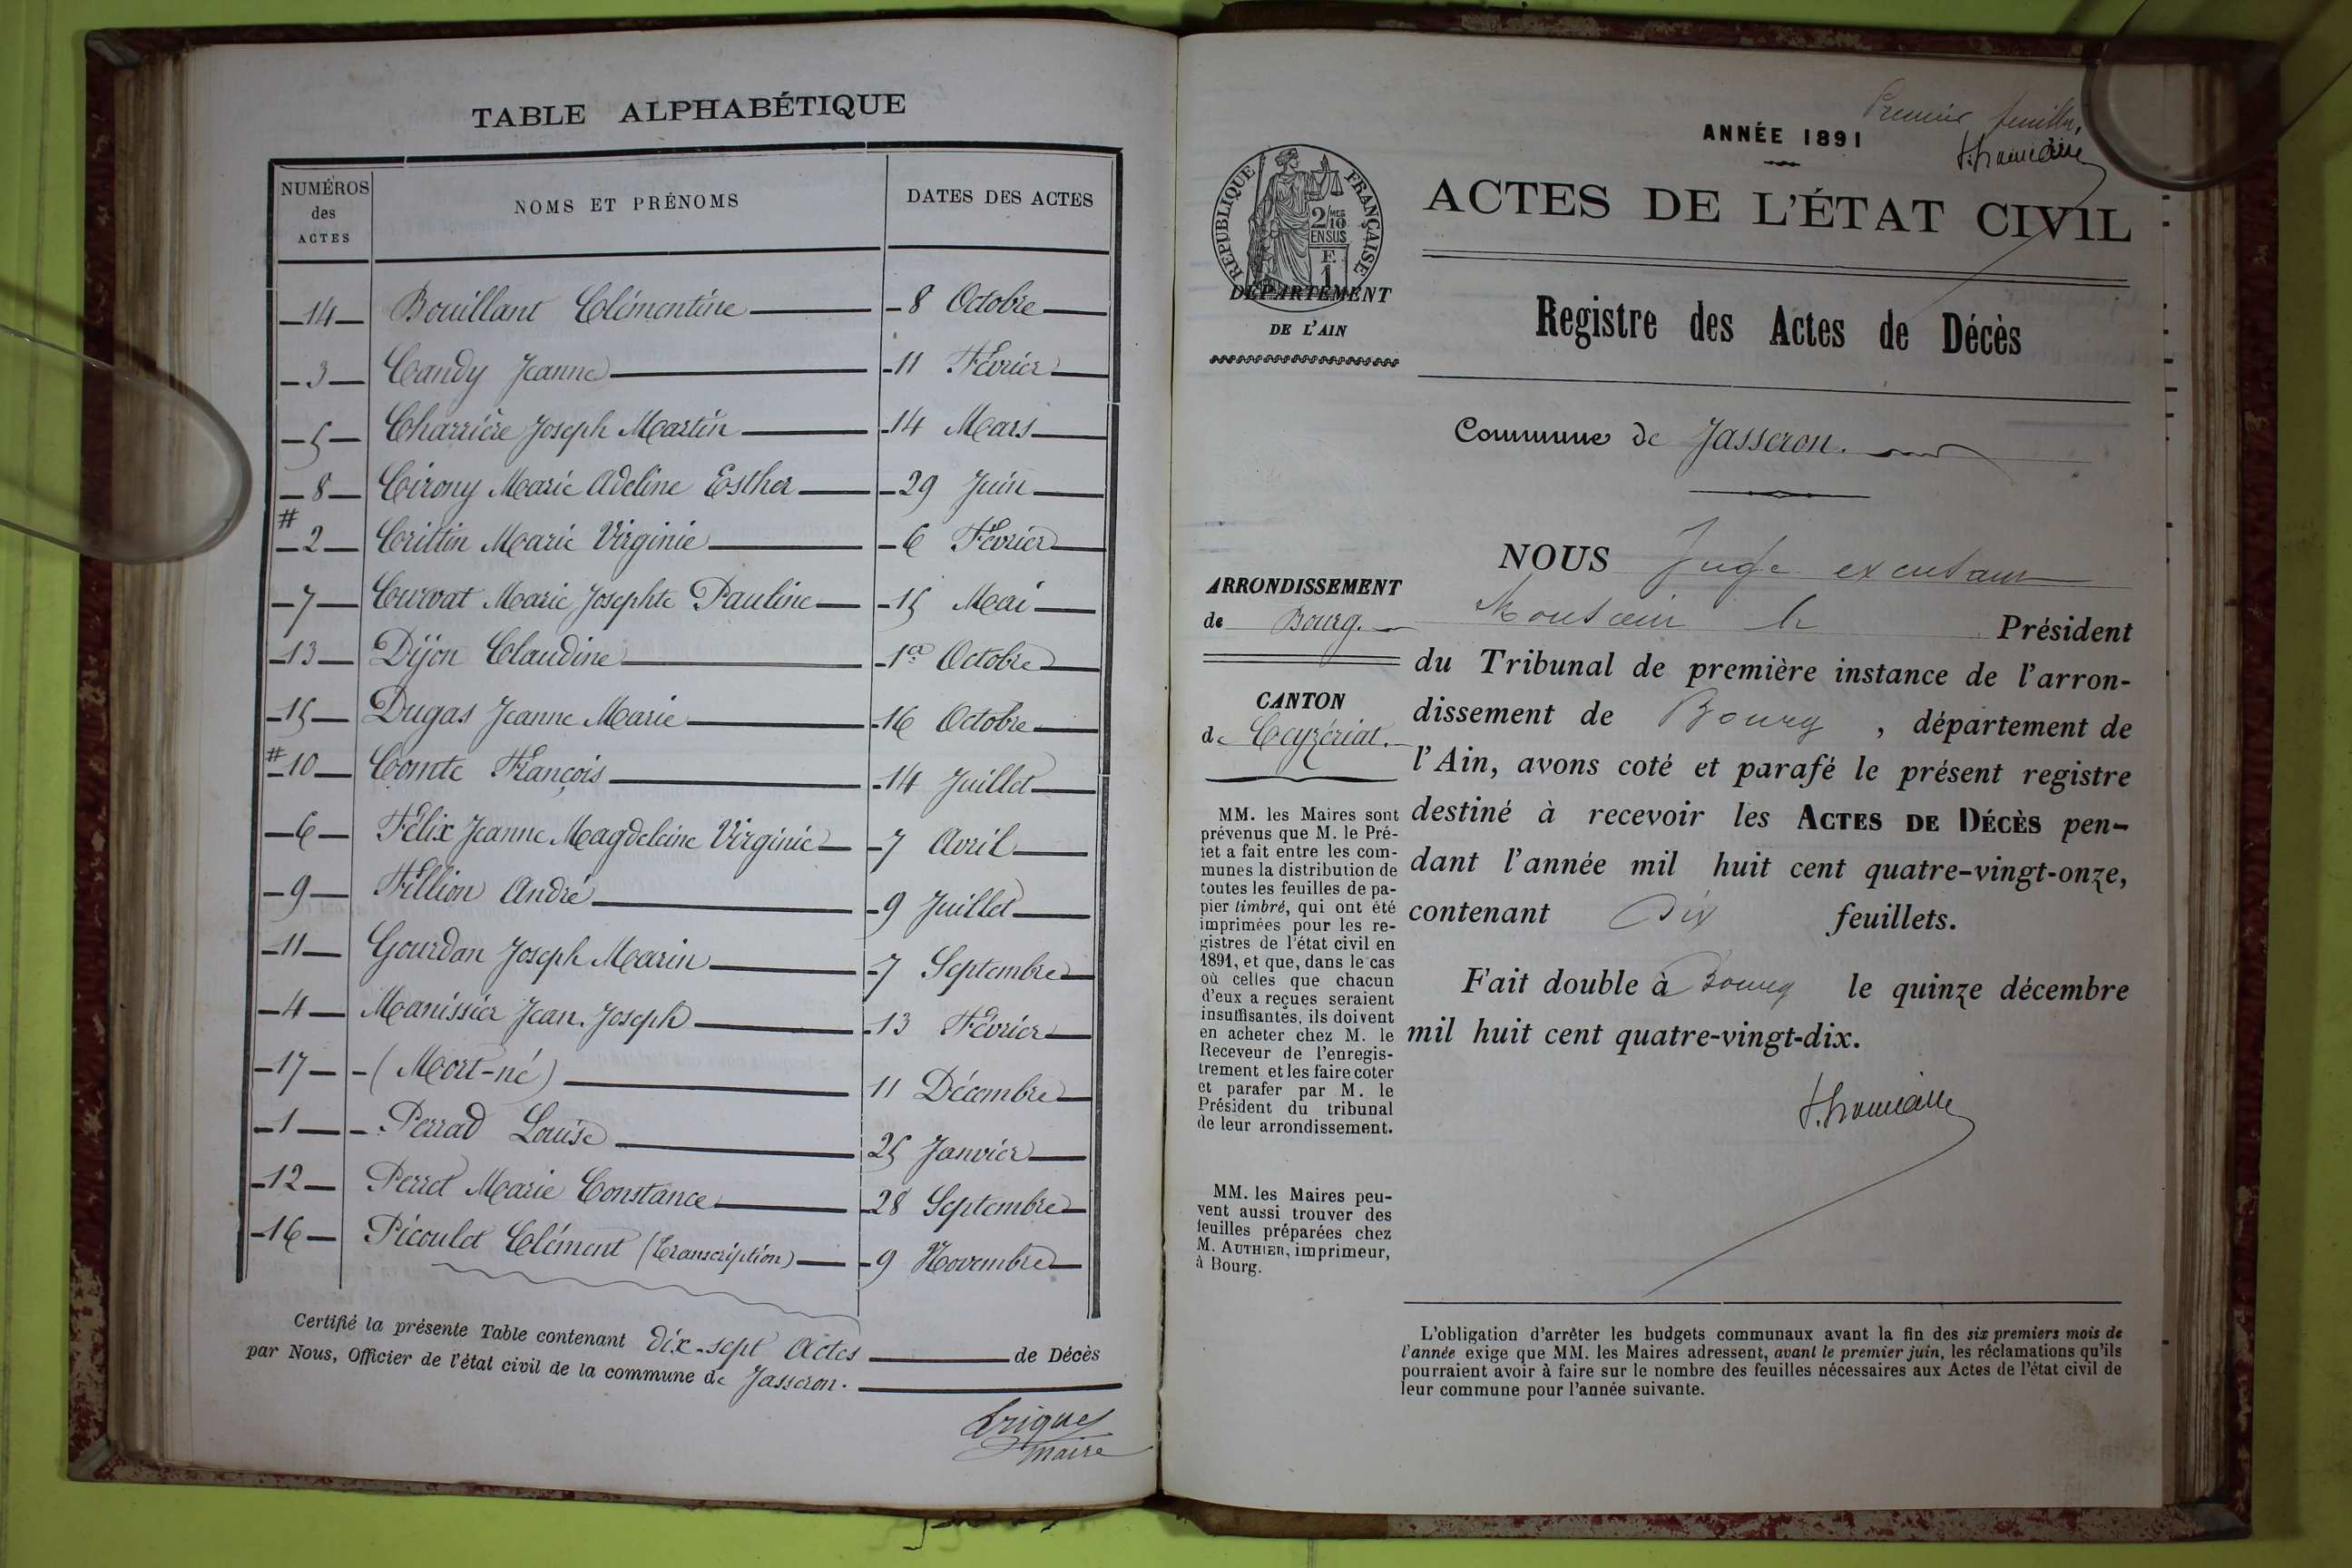 TABLE ALPHABÉTIQUE
NUMÉROS des ACTES
NOMS ET PRÉNOMS
DATES DES ACTES
14 Bouillant Clémentine 8 Octobre
3 Candy Jeanne 11 Février
5 Charrière Joseph Martin 14 Mars
8 Cirony Marie Adeline Esther 29 Juin
# 2 Crittin Marie Virginie 6 Février
7 Curvat Marie Josephte Pauline 15 Mai
13 Dijon Claudine 1er Octobre
15 Dugas Jeanne Marie 16 Octobre
# 10 Comte François 14 Juillet
6 Félix Jeanne Magdeleine Virginie 7 Avril
9 Fillion André 9 Juillet
11 Gourdan Joseph Marin 7 Septembre
4 Manissier Jean Joseph 13 Février
17 (Mort-né) 11 Décembre
1 Perrad Louise 25 Janvier
12 Perret Marie Constance 28 Septembre
16 Picoulet Clément (Transcription) 9 Novembre
Certifié la présente Table contenant dix-sept Actes de Décès
par Nous, Officier de l'état civil de la commune de Jasseron.
Maire
Premier feuillet
ANNÉE 1891
RÉPUBLIQUE FRANÇAISE
2/10 MES
EN SUS
F.
1
ACTES DE L'ÉTAT CIVIL
DÉPARTEMENT
DE L'AIN
Registre des Actes de Décès
Commune de Jasseron.
ARRONDISSEMENT
de Bourg.
CANTON
de Ceyzériat.
MM. les Maires sont
prévenus que M. le Pré-
fet a fait entre les com-
munes la distribution de
toutes les feuilles de pa-
pier timbré, qui ont été
imprimées pour les re-
gistres de l'état civil en
1891, et que, dans le cas
où celles que chacun
d'eux a reçues seraient
insuffisantes, ils doivent
en acheter chez M. le
Receveur de l'enregis-
trement et les faire coter
et parafer par M. le
Président du tribunal
de leur arrondissement.
MM. les Maires peu-
vent aussi trouver des
feuilles préparées chez
M. AUTHIER, imprimeur,
à Bourg.
NOUS Juge
Monsieur le Président
du Tribunal de première instance de l'arron-
dissement de Bourg, département de
l'Ain, avons coté et parafé le présent registre
destiné à recevoir les ACTES DE DÉCÈS pen-
dant l'année mil huit cent quatre-vingt-onze,
contenant Dix feuillets.
Fait double à Bourg le quinze décembre
mil huit cent quatre-vingt-dix.
L'obligation d'arrêter les budgets communaux avant la fin des six premiers mois de
l'année exige que MM. les Maires adressent, avant le premier juin, les réclamations qu'ils
pourraient avoir à faire sur le nombre des feuilles nécessaires aux Actes de l'état civil de
leur commune pour l'année suivante.